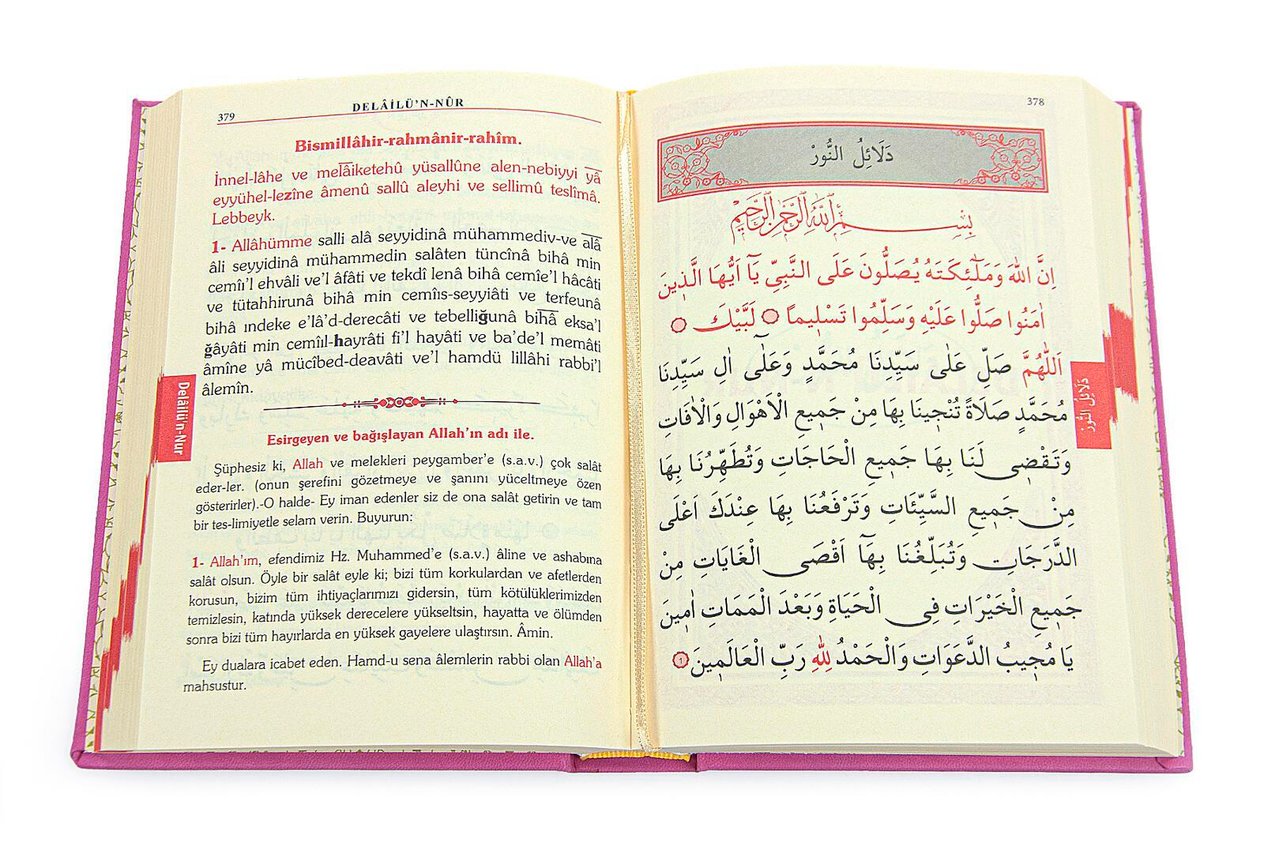 379
DELÂİLÜ'N-NÛR
Bismillâhir-rahmânir-rahîm.
İnnel-lâhe ve melâiketehû yüsallûne alen-nebiyyi yâ
eyyühel-lezîne âmenû sallû aleyhi ve sellimû teslîmâ.
Lebbeyk.
1- Allâhümme salli alâ seyyidinâ mühammediv-ve alâ
âli seyyidinâ mühammedin salâten tüncînâ bihâ min
cemîı'l ehvâli ve'l âfâti ve tekdî lenâ bihâ cemîe'l hâcâti
ve tütahhirunâ bihâ min cemîıs-seyyiâti ve terfeunâ
bihâ ındeke e'lâ'd-derecâti ve tebelliğunâ bihâ eksa'l
ğâyâti min cemîıl-hayrâti fi'l hayâti ve ba'de'l memâti
âmîne yâ mücîbed-deavâti ve'l hamdü lillâhi rabbi'l
âlemîn.
Esirgeyen ve bağışlayan Allah'ın adı ile.
Şüphesiz ki, Allah ve melekleri peygamber'e (s.a.v.) çok salât
eder-ler. (onun şerefini gözetmeye ve şanını yüceltmeye özen
gösterirler).-O halde- Ey iman edenler siz de ona salât getirin ve tam
bir tes-limiyetle selam verin. Buyurun:
1- Allah'ım, efendimiz Hz. Muhammed'e (s.a.v.) âline ve ashabına
salât olsun. Öyle bir salât eyle ki; bizi tüm korkulardan ve afetlerden
korusun, bizim tüm ihtiyaçlarımızı gidersin, tüm kötülüklerimizden
temizlesin, katında yüksek derecelere yükseltsin, hayatta ve ölümden
sonra bizi tüm hayırlarda en yüksek gayelere ulaştırsın. Âmin.
Ey dualara icabet eden. Hamd-u sena âlemlerin rabbi olan Allah'a
mahsustur.
Delâilü'n-Nur
378
دَلَائِلُ النُّورْ
بِسْمِ اللّٰهِ الرَّحْمٰنِ الرَّحِيمِ
اِنَّ اللّٰهَ وَمَلٰٓئِكَتَهُ يُصَلُّونَ عَلَى النَّبِيِّ يَٓا اَيُّهَا الَّذِينَ
اٰمَنُوا صَلُّوا عَلَيْهِ وَسَلِّمُوا تَسْلِيمًا لَبَّيْكَ
اَللّٰهُمَّ صَلِّ عَلٰى سَيِّدِنَا مُحَمَّدٍ وَعَلٰٓى اٰلِ سَيِّدِنَا
مُحَمَّدٍ صَلَاةً تُنْجِينَا بِهَا مِنْ جَمِيعِ الْاَهْوَالِ وَالْاٰفَاتِ
وَتَقْضِى لَنَا بِهَا جَمِيعَ الْحَاجَاتِ وَتُطَهِّرُنَا بِهَا
مِنْ جَمِيعِ السَّيِّئَاتِ وَتَرْفَعُنَا بِهَا عِنْدَكَ اَعْلَى
الدَّرَجَاتِ وَتُبَلِّغُنَا بِهَٓا اَقْصَى الْغَايَاتِ مِنْ
جَمِيعِ الْخَيْرَاتِ فِى الْحَيَاةِ وَبَعْدَ الْمَمَاتِ اٰمِينَ
يَا مُجِيبُ الدَّعَوَاتِ وَالْحَمْدُ لِلّٰهِ رَبِّ الْعَالَمِينَ ١
دَلَائِلُ النُّورْ